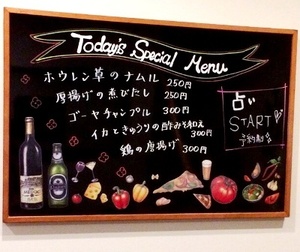 Today's Special Menu
ホウレン草のナムル 250円
厚揚げの煮びたし 250円
ゴーヤチャンプル 300円
イカときゅうりの酢みそ和え 300円
鶏の唐揚げ 300円
占い
START
予約制